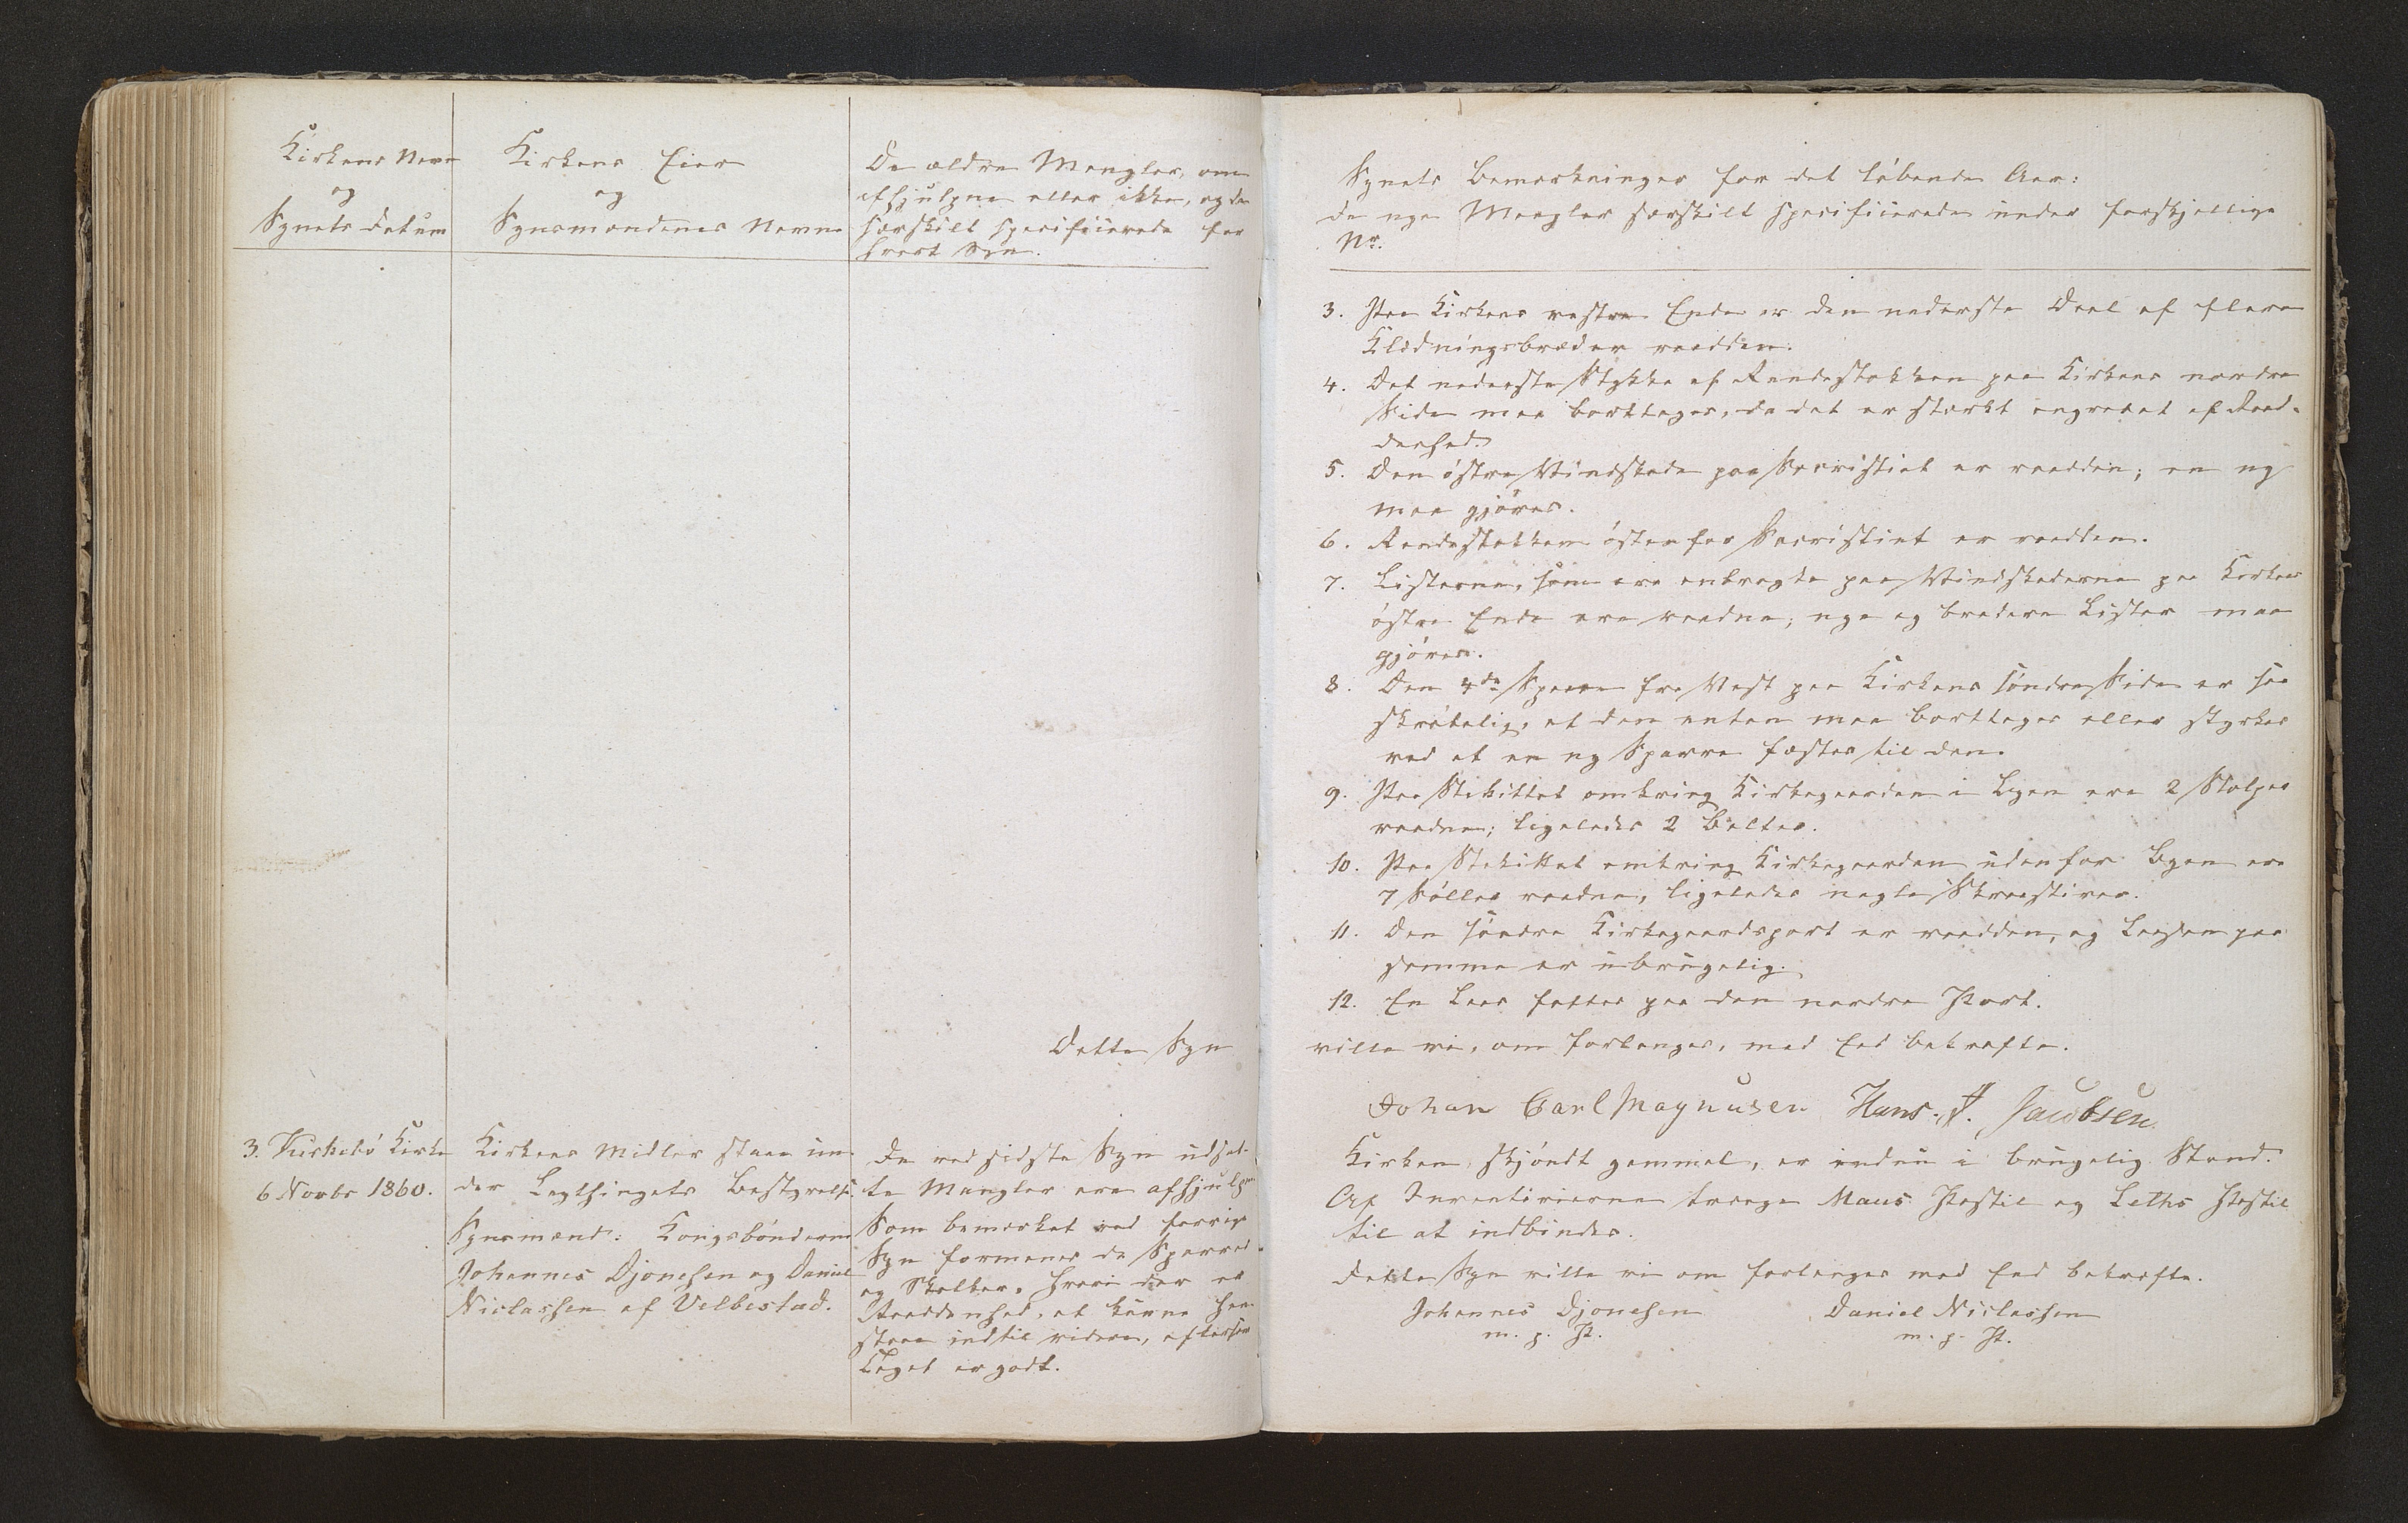 Kirkens Navn
og
Synets Datum
Kirkens Eier
og
Synsmændenes Navne
De ældre Mangler, om
afhjulpne eller ikke, og de
særskilt specificerede for
hvert Syn.
Dette Syn
3. Kirkebö Kirke
6 Novbr 1860.
Kirkens Midler staae un-
der Lagthingets Bestyrelse.
Synsmænd: Kongsbönderne
Johannes Djonesen og Daniel
Niclassen af Velbestad.
De ved sidste Syn udsat-
te Mangler ere afhjulpne
Som bemærket ved forrige
Syn formenes de Sparrer
og Stolker, hvori der er
Raaddenhed, at kunne hen-
staae indtil videre, eftersom
Taget er godt.
Synets Bemærkninger for det löbende Aar:
de nye Mangler særskilt specificerede under forskjellige
No.
3. Paa Kirkens vestre Ende er den nederste Deel af flere
Klædningsbræder raadden.
4. Det nederste Stykke af Rendestokken paa Kirkens nordre
Side maa borttages, da det er stærkt angrebet af Raad-
denhed.
5. Den östre Vindskede paa Sacristiet er raadden; en ny
maa gjöres.
6. Rendestokken östenfor Sacristiet er raadden.
7. Listerne, som ere anbragte paa Vindskederne paa Korkens
östre Ende ere raadne; nye og bredere Lister maa
gjöres.
8. Den 4de Sparre fra Vest paa Kirkens söndre Side er saa
skröbelig, at den enten maa borttages eller styrkes
ved at en ny Sparre fæstes til den.
9. Paa Stakittet omkring Kirkegaarden i Byen ere 2 Stolper
raadne; ligeledes 2 Belter.
10. Paa Stakittet omkring Kirkegaarden udenfor Byen ere
7 Söller raadne, ligeledes nogle Skraastiver.
11. Den söndre Kirkegaardsport er raadden, og Laasen paa
samme er ubrugelig.
12. En Laas fattes paa den nordre Port.
ville vi, om forlanges, med Eed bekræfte.
Johan Carl Magnusen Hans. J. Jacobsen
Kirken, skjöndt gammel, er endnu i brugelig Stand.
Af Inventarierne trænge Maus Postil og Leths Postil
til at indbindes.
Dette Syn ville vi om forlanges med Eed bekræfte.
Johannes Djonesen Daniel Niclassen
m. p. P. m. p. P.